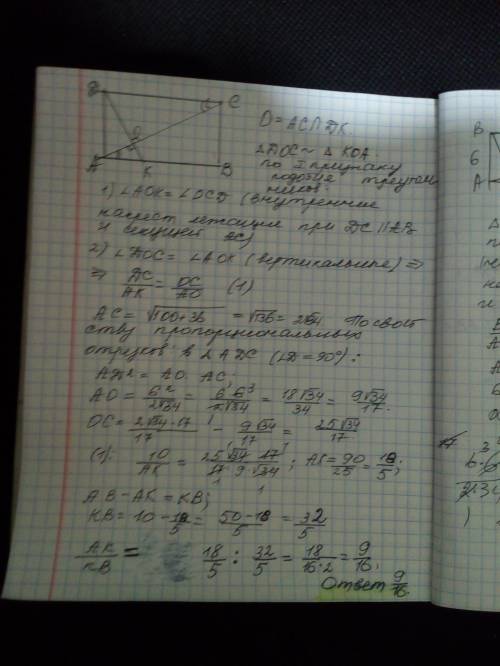 D
C
O
A
K
B
O = AC∩DK.
ΔDOC ~ Δ KOA
по I признаку
подобия треуголь
ников:
1) ∠AOK = ∠OCD (внутренние
накрест лежащие при DC || AB
и секущей AC)
2) ∠DOC = ∠AOK (вертикальные) ⇒
⇒ DC/AK = OC/AO (1)
AC = √100+36 = √136 = 2√34 По свой
ству пропорциональных
отрезков в ΔADC (∠D = 90°):
AD² = AO · AC
AO = 6²/2√34 = 6·6³/2√34 = 18√34/34 = 9√34/17.
OC = 2√34·17/17 - 9√34/17 = 25√34/17
(1): 10/AK = 25√34·17/17·9√34; AK = 90/25 = 18/5;
AB - AK = KB;
KB = 10 - 18/5 = 50-18/5 = 32/5
AK/KB = 18/5 : 32/5 = 18/16·2 = 9/16;
Ответ 9/16.
B
6
A